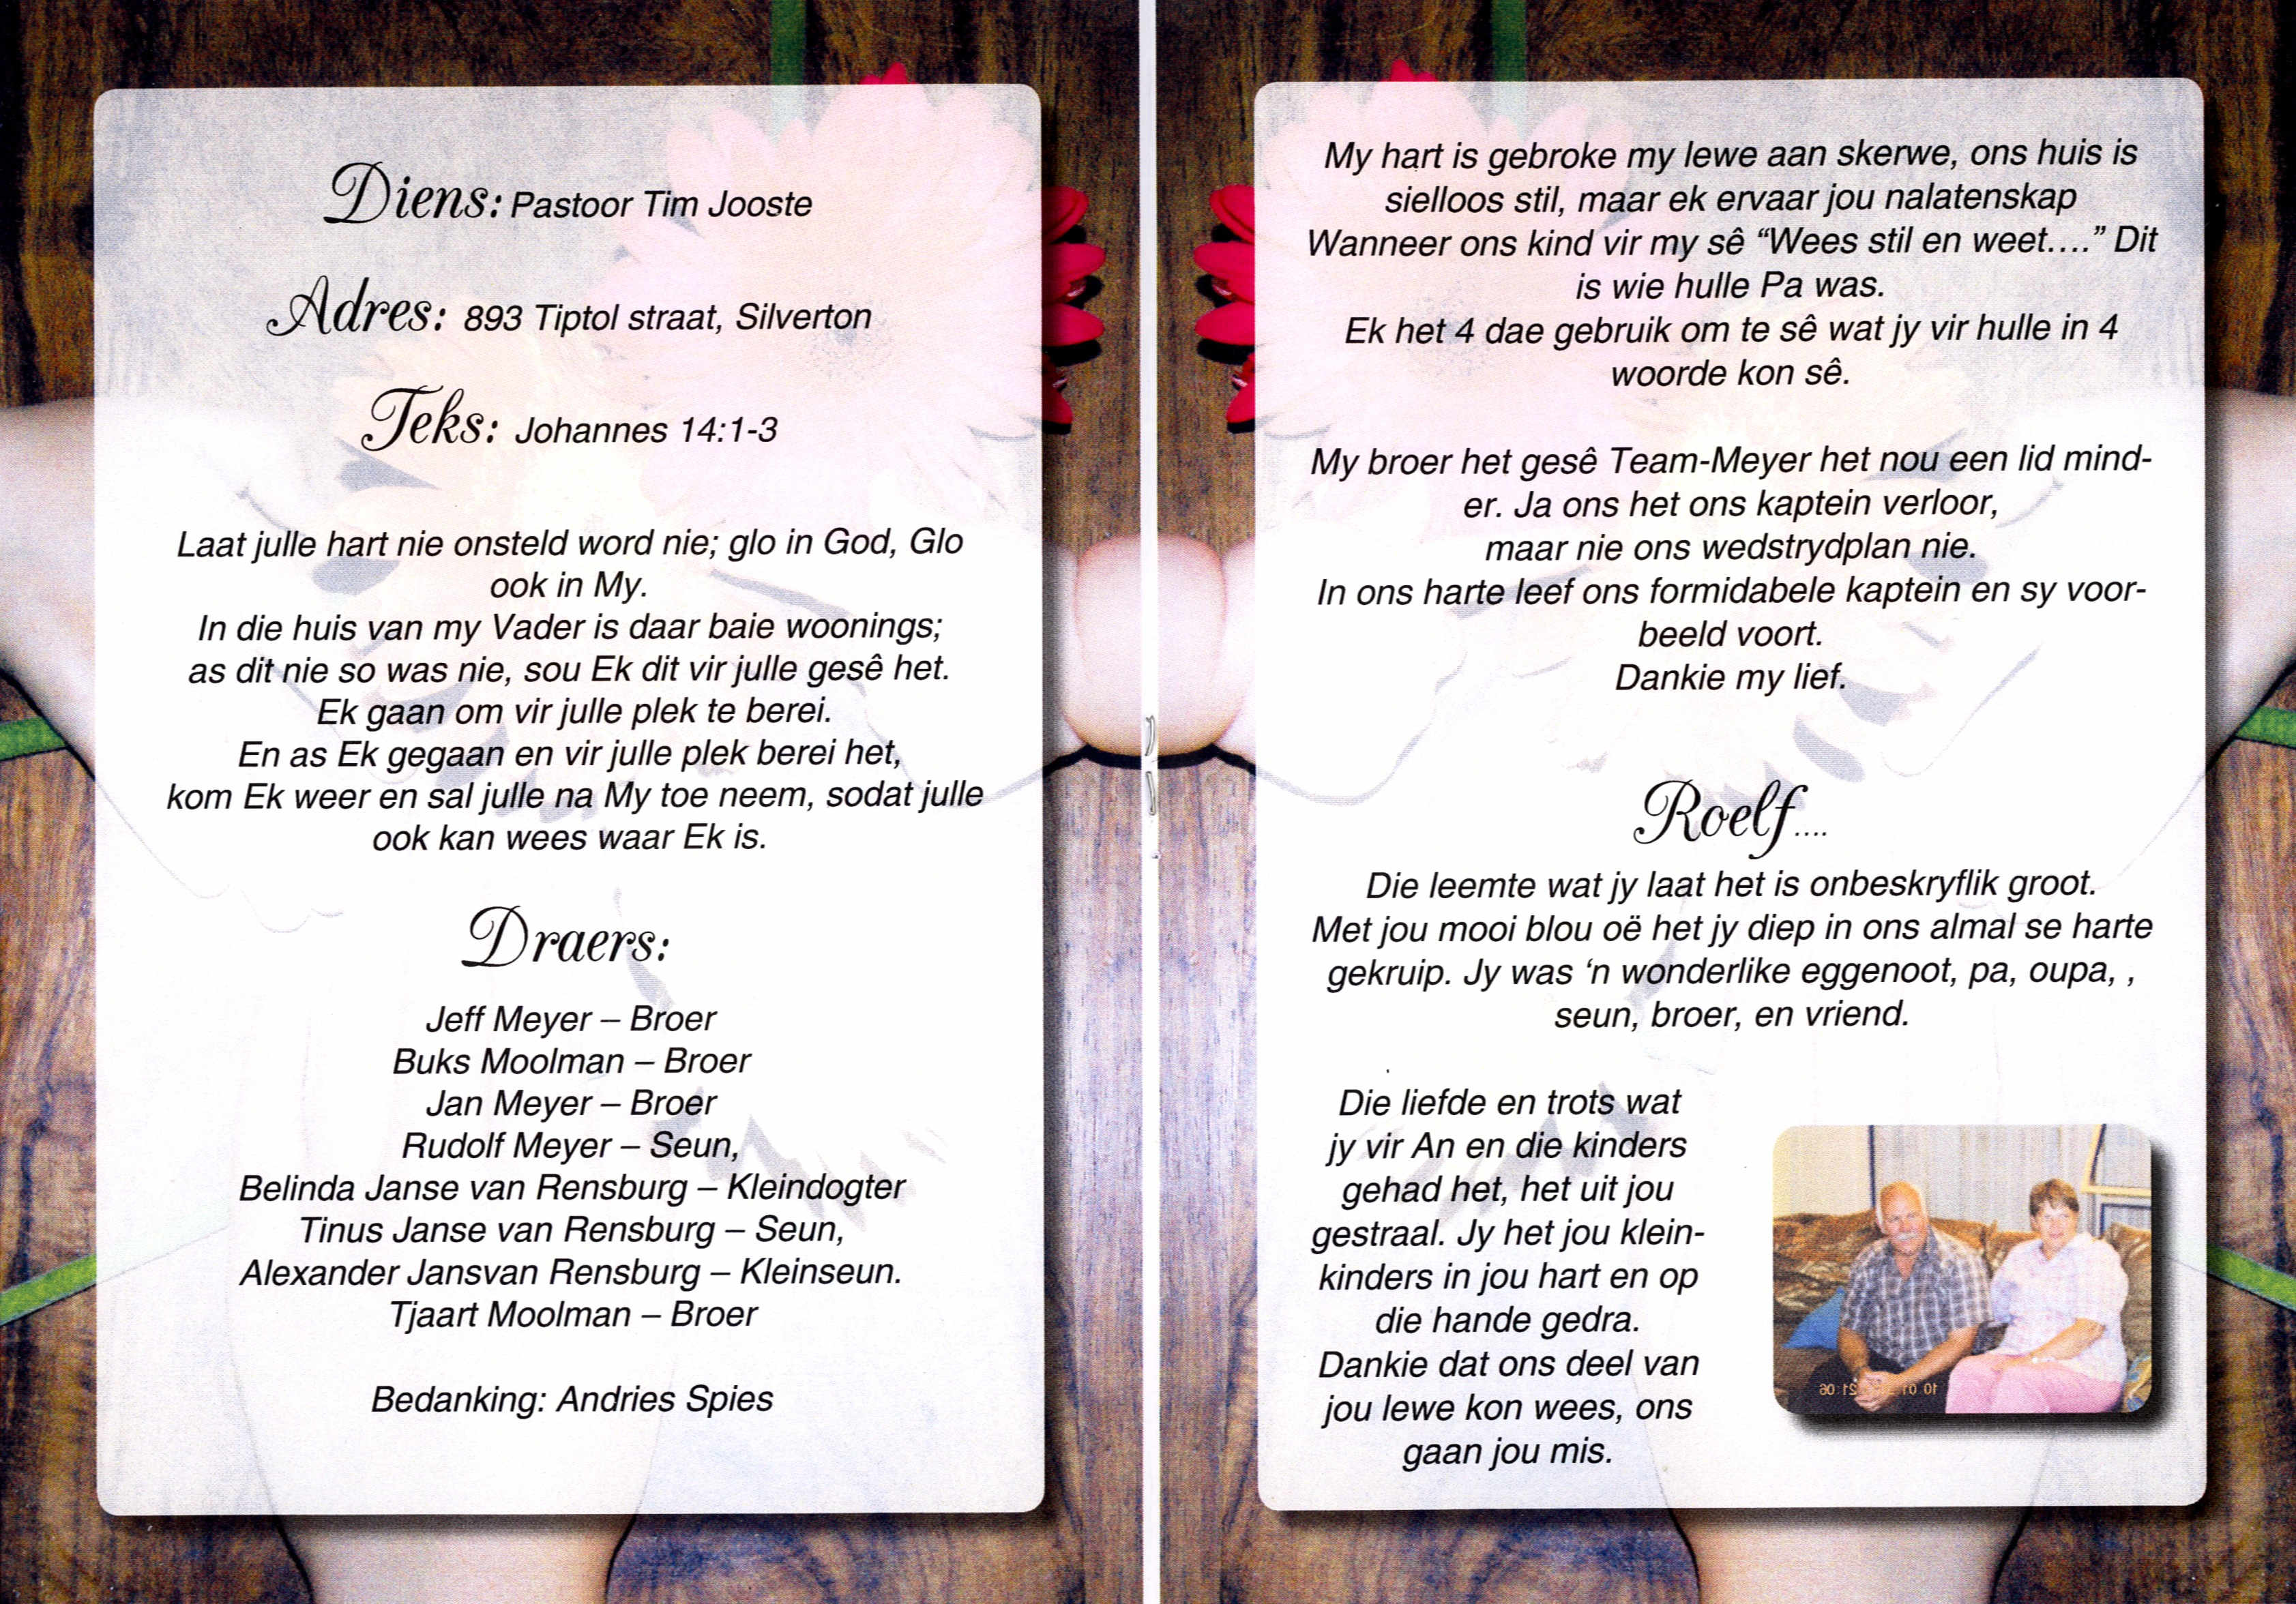 Diens: Pastoor Tim Jooste
Adres: 893 Tiptol straat, Silverton
Teks: Johannes 14:1-3
Laat julle hart nie onsteld word nie; glo in God, Glo
ook in My.
In die huis van my Vader is daar baie woonings;
as dit nie so was nie, sou Ek dit vir julle gesê het.
Ek gaan om vir julle plek te berei.
En as Ek gegaan en vir julle plek berei het,
kom Ek weer en sal julle na My toe neem, sodat julle
ook kan wees waar Ek is.
Draers:
Jeff Meyer – Broer
Buks Moolman – Broer
Jan Meyer – Broer
Rudolf Meyer – Seun,
Belinda Janse van Rensburg – Kleindogter
Tinus Janse van Rensburg – Seun,
Alexander Jansvan Rensburg – Kleinseun.
Tjaart Moolman – Broer
Bedanking: Andries Spies
My hart is gebroke my lewe aan skerwe, ons huis is
sielloos stil, maar ek ervaar jou nalatenskap
Wanneer ons kind vir my sê “Wees stil en weet....” Dit
is wie hulle Pa was.
Ek het 4 dae gebruik om te sê wat jy vir hulle in 4
woorde kon sê.
My broer het gesê Team-Meyer het nou een lid mind-
er. Ja ons het ons kaptein verloor,
maar nie ons wedstrydplan nie.
In ons harte leef ons formidabele kaptein en sy voor-
beeld voort.
Dankie my lief.
Roelf....
Die leemte wat jy laat het is onbeskryflik groot.
Met jou mooi blou oë het jy diep in ons almal se harte
gekruip. Jy was ‘n wonderlike eggenoot, pa, oupa, ,
seun, broer, en vriend.
Die liefde en trots wat
jy vir An en die kinders
gehad het, het uit jou
gestraal. Jy het jou klein-
kinders in jou hart en op
die hande gedra.
Dankie dat ons deel van
jou lewe kon wees, ons
gaan jou mis.